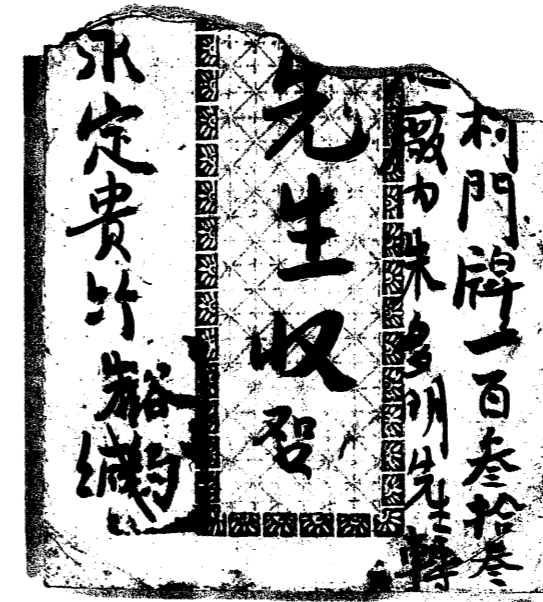 村門牌一百叁拾叁
廠内朱多明先生轉
先生收啓
永定貴竹
緘